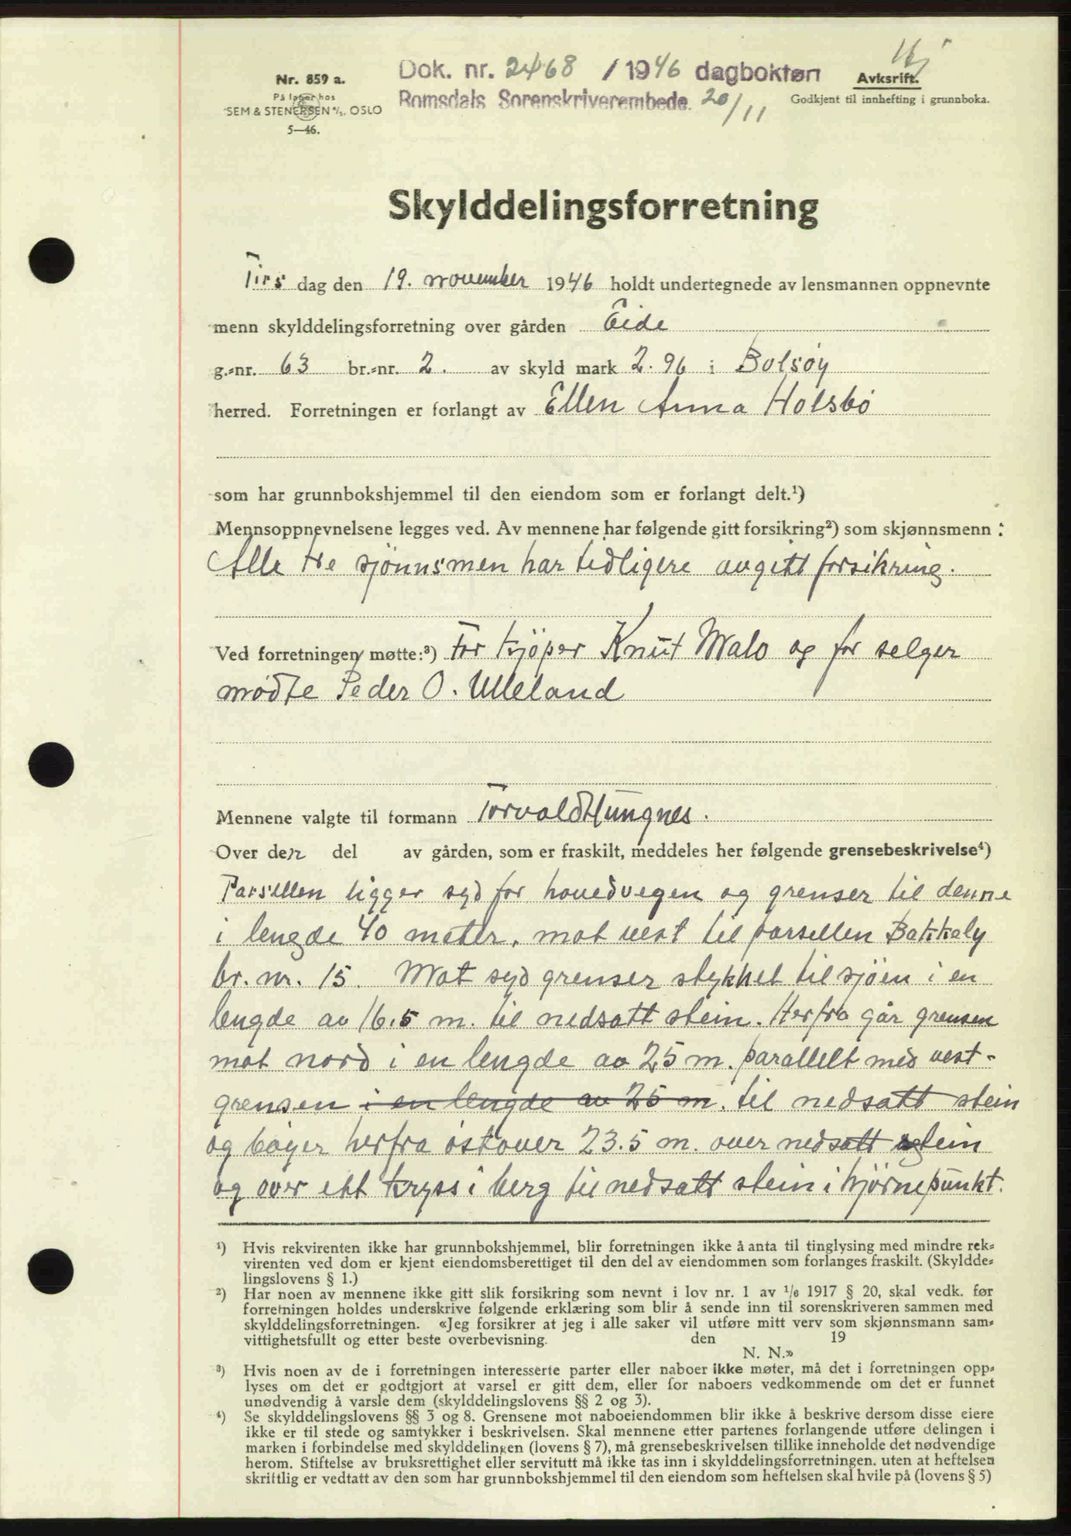 Nr. 859 a.
På lager hos
SEM & STENERSEN A/S. OSLO
5—46.
Dok. nr. 2468 / 1946 dagboktøn
Romsdals Sorenskriverembede. 20/11
Avskrift.
Godkjent til innhefting i grunnboka.
Skylddelingsforretning
Tirsdag den 19. november 1946 holdt undertegnede av lensmannen oppnevnte
menn skylddelingsforretning over gården Eide
g.-nr. 63 br.-nr. 2. av skyld mark 2.96 i Bolsøy
herred. Forretningen er forlangt av Ellen Anna Holsbö
som har grunnbokshjemmel til den eiendom som er forlangt delt.¹)
Mennsoppnevnelsene legges ved. Av mennene har følgende gitt forsikring²) som skjønnsmenn:
Alle tre sjönnsmen har tidligere avgitt forsikring.
Ved forretningen møtte:³) For kjöper Knut Malo og for selger
mödte Peder O. Ulleland
Mennene valgte til formann Torvald Hungnes.
Over den del av gården, som er fraskilt, meddeles her følgende grensebeskrivelse⁴)
Parsellen ligger syd for hovedvegen og grenser til denne
i lengde 40 meter, mot vest til parsellen Bakkaly
br. nr. 15. Mot syd grenser stykket til sjöen i en
lengde av 16.5 m. til nedsatt stein. Herfra går grensen
mot nord i en lengde av 25 m. parallelt med vest-
grensen i en lengde av 25 m. til nedsatt stein
og böyer herfra östover 23.5 m. over nedsatt stein
og over ett kryss i berg til nedsatt stein i hjörnepunkt.
¹) Hvis rekvirenten ikke har grunnbokshjemmel, blir forretningen ikke å anta til tinglysing med mindre rek-
virenten ved dom er kjent eiendomsberettiget til den del av eiendommen som forlanges fraskilt. (Skyldde-
lingslovens § 1.)
²) Har noen av mennene ikke gitt slik forsikring som nevnt i lov nr. 1 av 1/6 1917 § 20, skal vedk. før
forretningen holdes underskrive følgende erklæring som blir å sende inn til sorenskriveren sammen med
skylddelingsforretningen. «Jeg forsikrer at jeg i alle saker vil utføre mitt verv som skjønnsmann sam-
vittighetsfullt og etter beste overbevisning. den 19
N. N.»
³) Hvis noen av de i forretningen interesserte parter eller naboer ikke møter, må det i forretningen opp-
lyses om det er godtgjort at varsel er gitt dem, eller for naboers vedkommende om det er funnet
unødvendig å varsle dem (skylddelingslovens §§ 2 og 3).
⁴) Se skylddelingslovens §§ 3 og 8. Grensene mot naboeiendommen blir ikke å beskrive dersom disse eiere
ikke er til stede og samtykker i beskrivelsen. Skal mennene etter partenes forlangende utføre delingen i
marken i forbindelse med skylddelingen (lovens § 7), må grensebeskrivelsen tillike inneholde det nødvendige
herom. Stiftelse av bruksrettighet eller servitutt må ikke tas inn i skylddelingsforretningen. uten at heftelsen
skriftlig er vedtatt av den som har grunnbokshjemmel til den eiendom som heftelsen skal hvile på (lovens § 5)